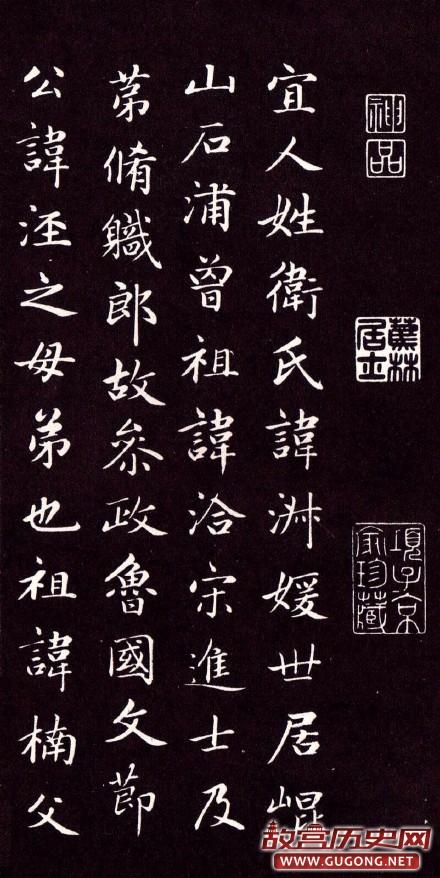 神品
蕉林居士
項子京家珍藏
宜人姓衛氏諱淑媛世居崐
山石浦曾祖諱洽宋進士及
苐脩軄郎故叅政魯國文莭
公諱涇之母弟也祖諱楠父
故宫历史网
WWW.GUGONG.NET